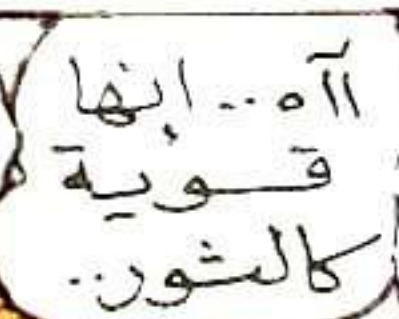 آآه.. إنها
قوية
كالثور..